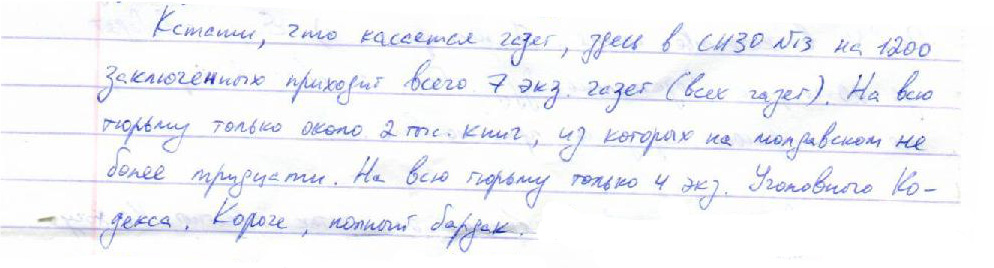 Кстати, что касается газет, здесь в СИЗО №13 на 1200
заключенных приходит всего 7 экз. газет (всех газет). На всю
тюрьму только около 2 тыс. книг, из которых на молдавском не
более тридцати. На всю тюрьму только 4 экз. Уголовного Ко-
декса. Короче, полный бардак.